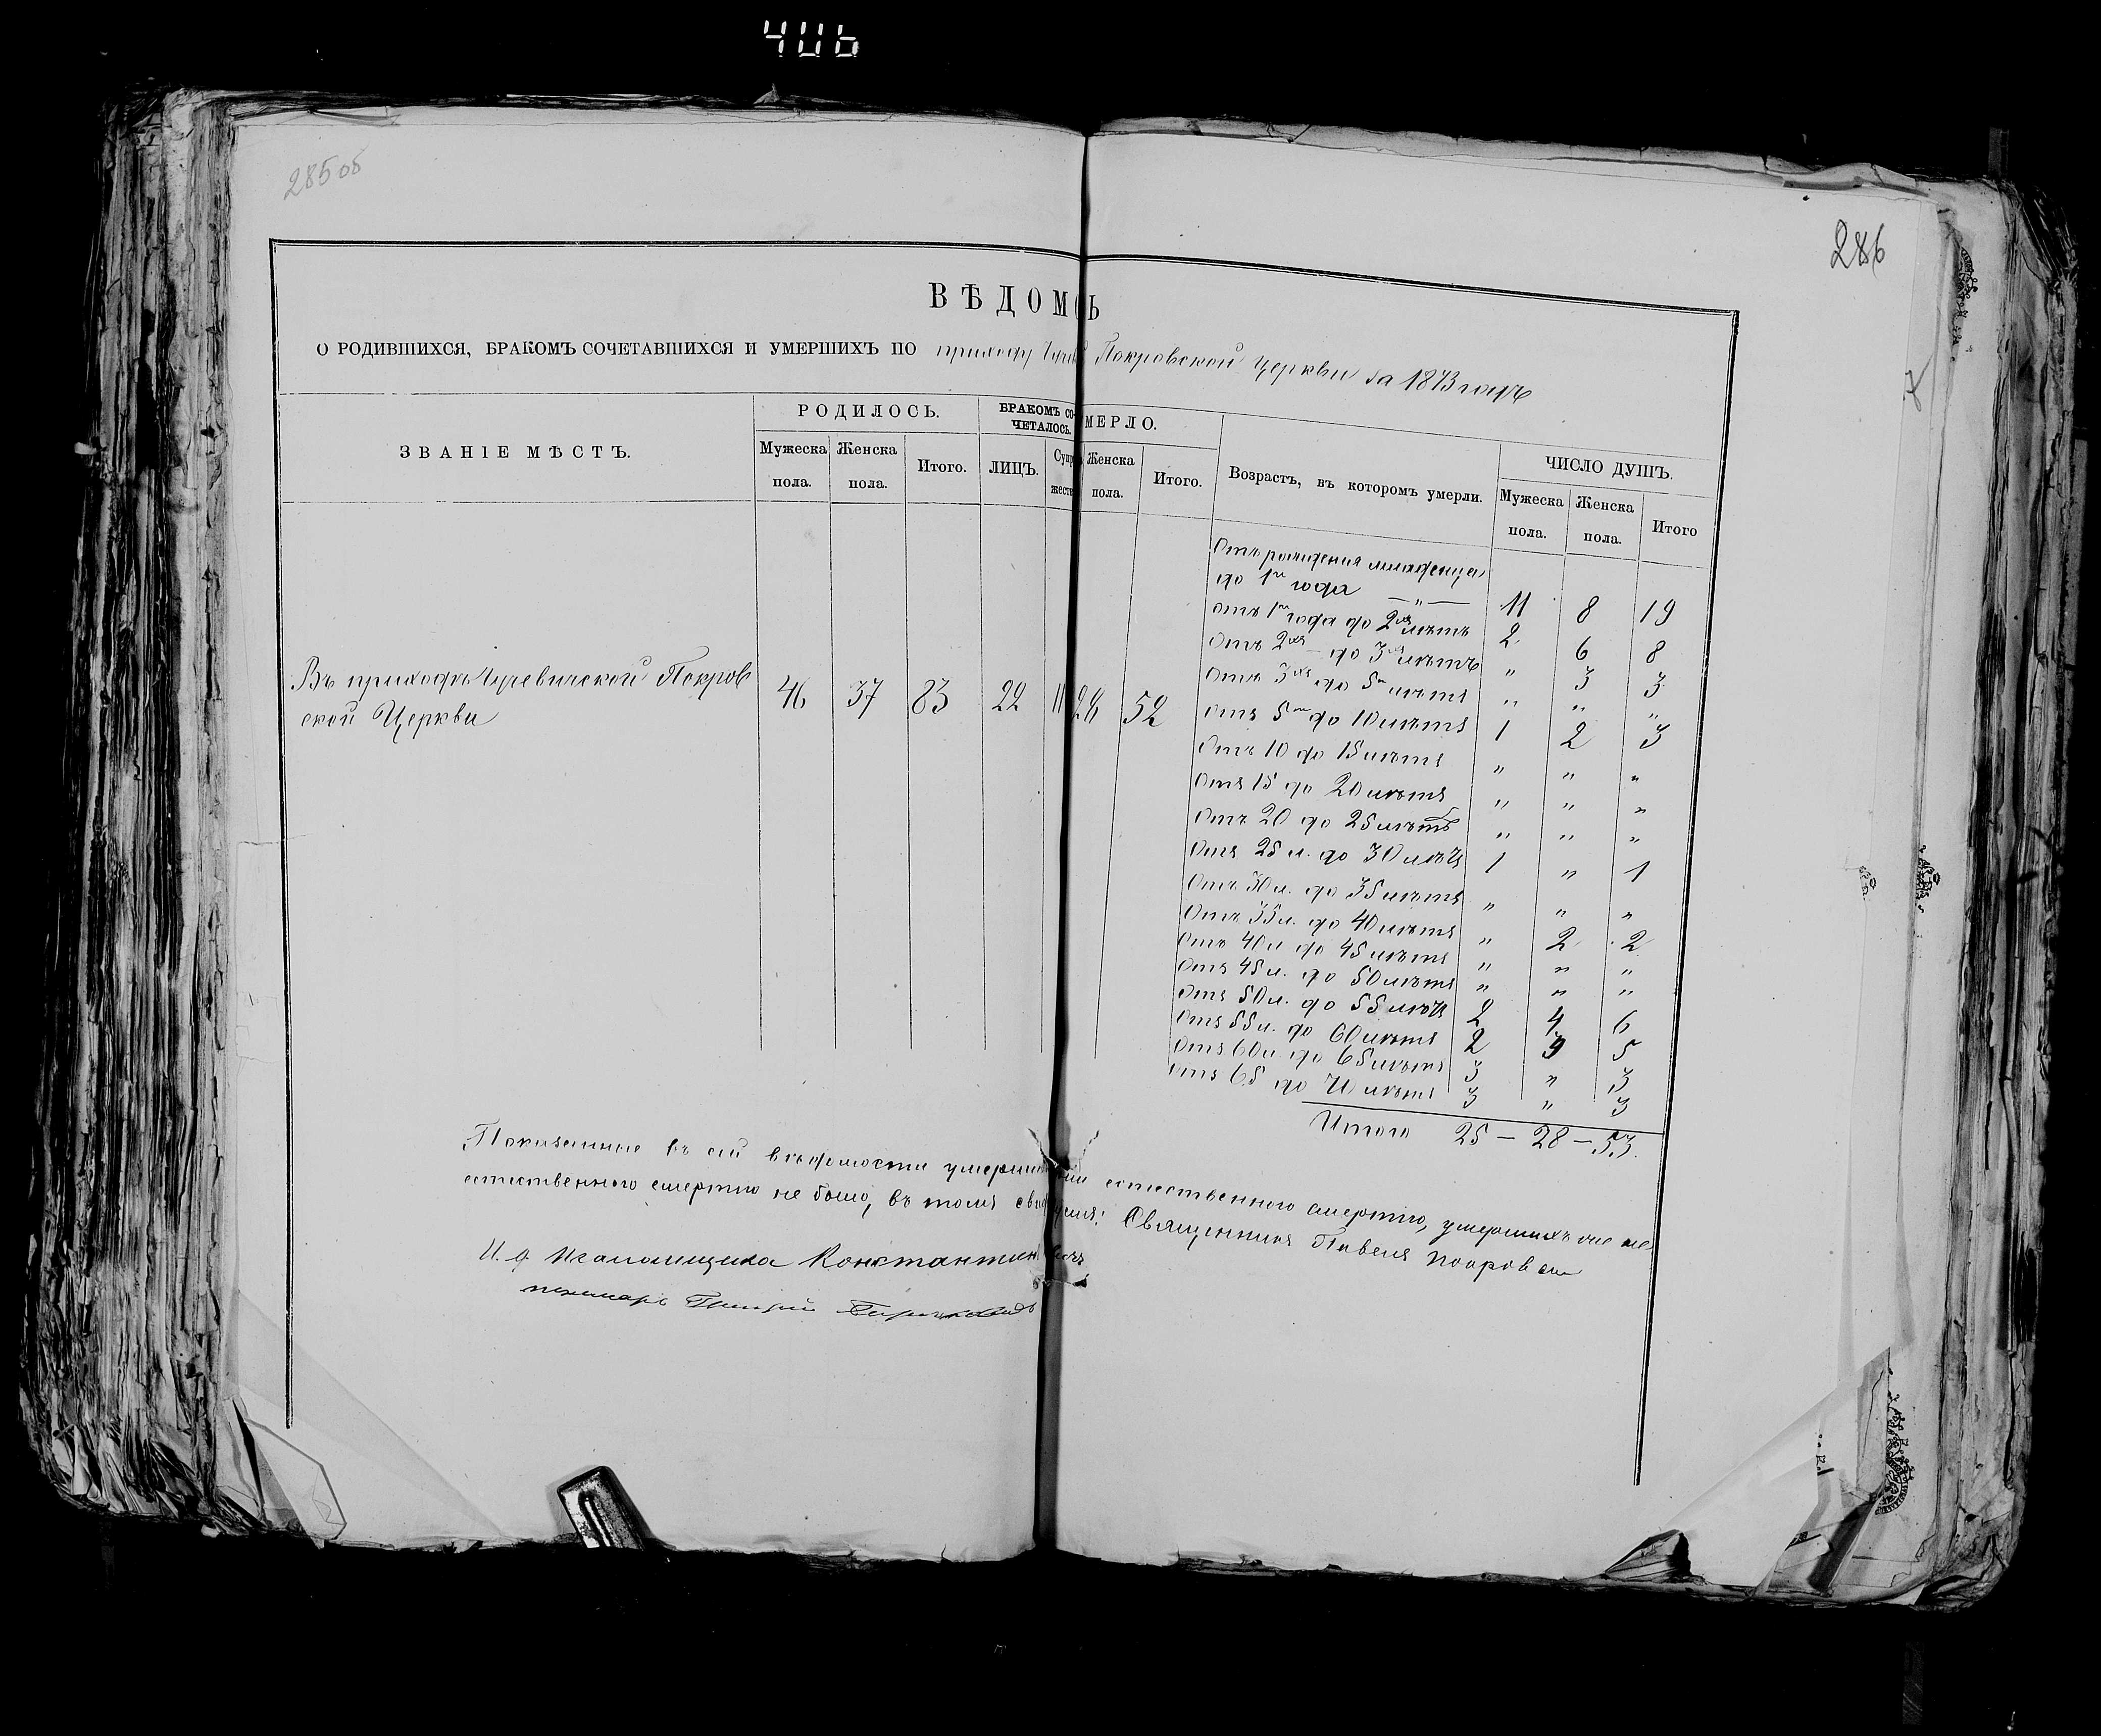 406
285 об
286
ВѢДОМ Ь
О РОДИВШИХСЯ, БРАКОМЪ СОЧЕТАВШИХСЯ И УМЕРШИХЪ ПО приходу Покровской Церкви за 1873 годъ
ЗВАНІЕ МѢСТЪ.
РОДИЛОСЬ.
БРАКОМЪ СО-
ЧЕТАЛОСЬ.
МЕРЛО.
Мужеска пола.
Женска пола.
Итого.
ЛИЦЪ.
Супр
жеств
Женска пола.
Итого.
Возрастъ, въ которомъ умерли.
ЧИСЛО ДУШЪ.
Мужеска пола.
Женска пола.
Итого
Въ приходѣ Покров
ской Церкви
46 37 83 22 11 28 52
Отъ рожденія младенца
до 1го года —„— 11 8 19
отъ 1го года до 2хъ лѣтъ 2 6 8
Отъ 2хъ — до 3хъ лѣтъ „ 3 3
Отъ 3хъ до 5ти лѣтъ „ „ „
Отъ 5ти до 10 лѣтъ 1 2 3
Отъ 10 до 15 лѣтъ „ „ „
Отъ 15 до 20 лѣтъ „ „ „
Отъ 20 до 25 лѣтъ „ „ „
Отъ 25 л. до 30 лѣтъ 1 „ 1
Отъ 30 л. до 35 лѣтъ „ „ „
Отъ 35 л. до 40 лѣтъ „ 2 2
Отъ 40 л до 45 лѣтъ „ „ „
Отъ 45 л. до 50 лѣтъ „ „ „
Отъ 50 л. до 55 лѣтъ 2 4 6
Отъ 55 л. до 60 лѣтъ 2 3 5
Отъ 60 л до 65 лѣтъ 3 „ 3
отъ 65 до 70 лѣтъ 3 „ 3
Итого 25 — 28 — 53.
Показанные въ сей вѣдомости умерли естественною смертію, умершихъ же не
естественною смертію не было, въ томъ Священникъ Павелъ Покровскій
И. д Псаломщика Константин
пономарь